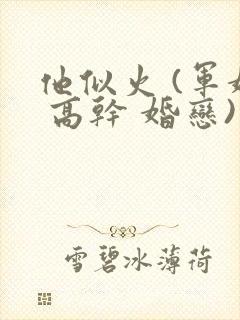 他似火(軍婚
高幹 婚戀)
雪碧冰薄荷